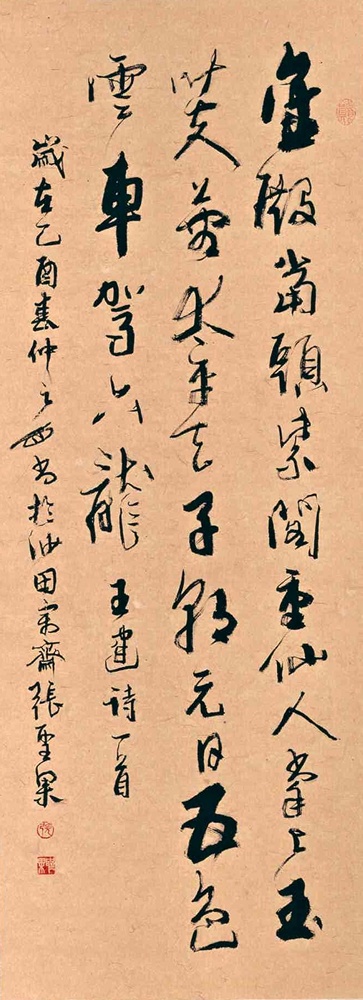 金殿當頭紫閣重仙人掌上玉
芙蓉太平天子朝元日五色
雲車駕六龍 王建詩一首
歲在乙酉春仲之書於油田寓齋張聖果